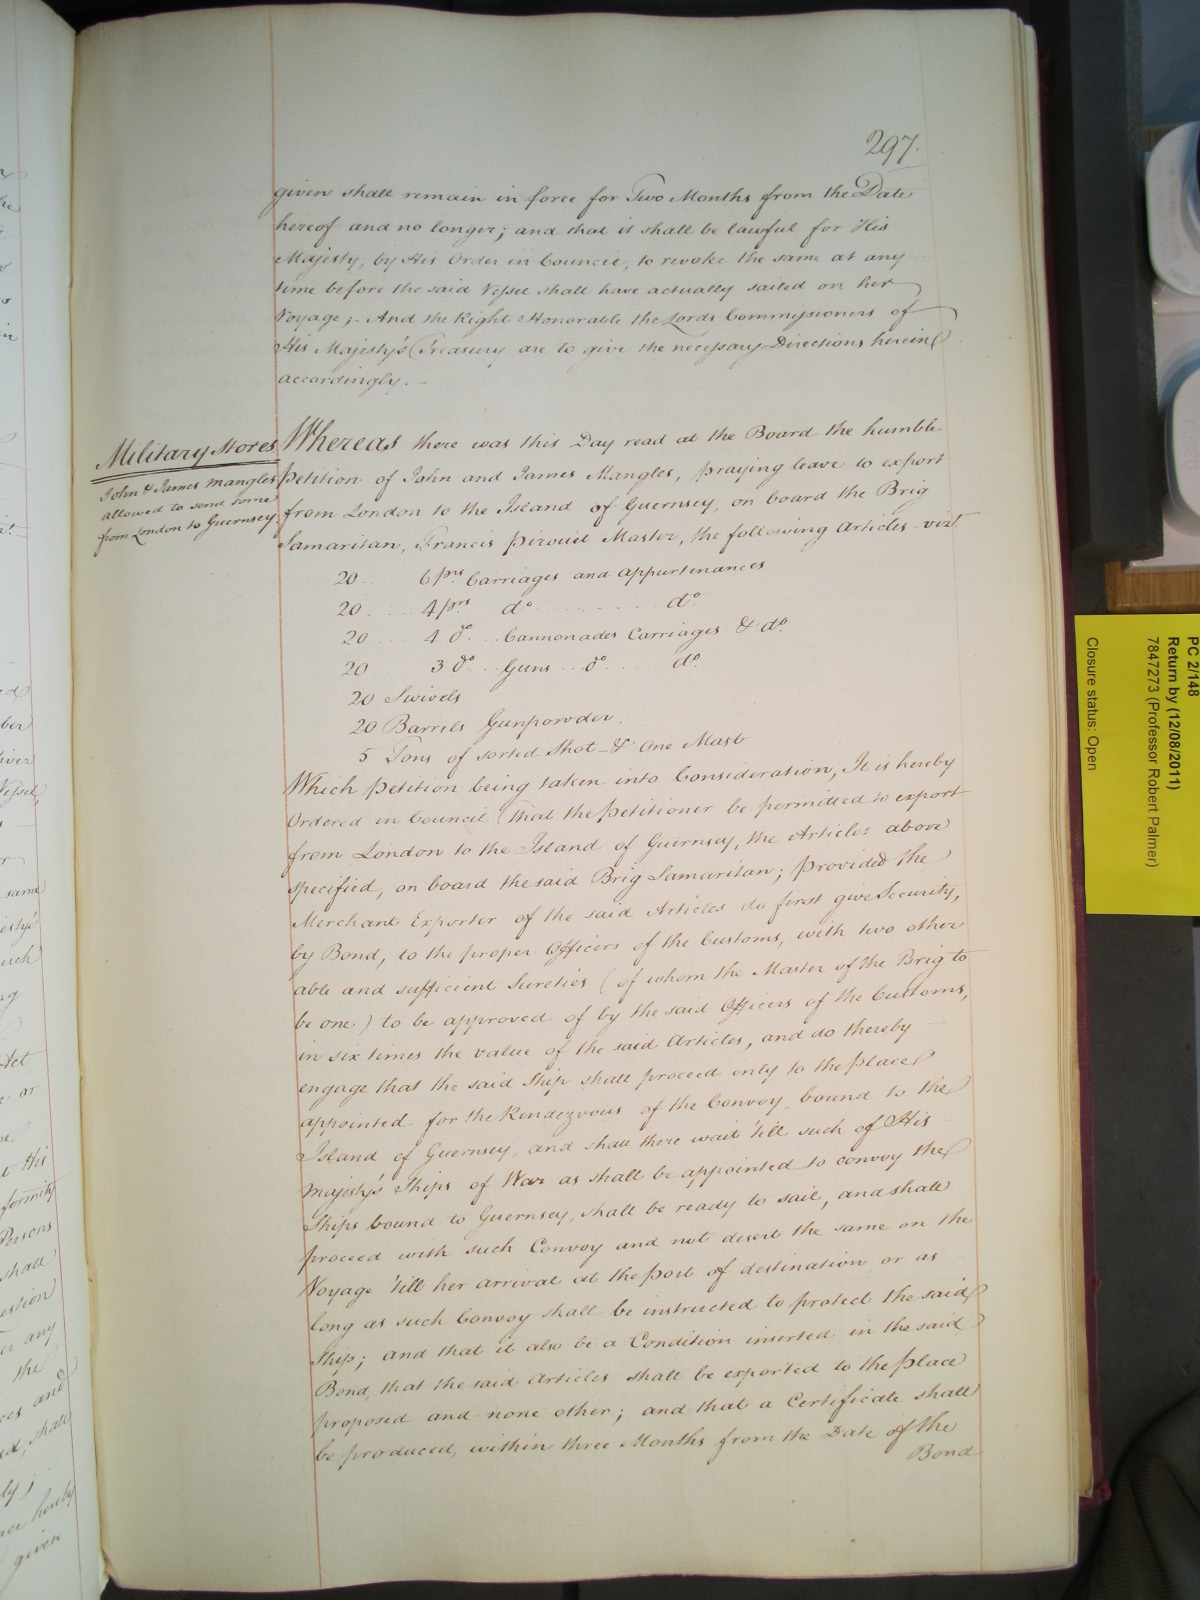 297.
given shall remain in force for Two Months from the Date
hereof and no longer; and that it shall be lawful for His
Majesty, by His Order in Council, to revoke the same at any
time before the said Vessel shall have actually sailed on her
Voyage; And the Right Honorable the Lords Commissioners of
His Majesty's Treasury are to give the necessary Directions herein
accordingly. -
Military Stores
John & James Mangles
allowed to send some
from London to Guernsey
Whereas there was this Day read at the Board the humble
Petition of John and James Mangles, praying leave to export
from London to the Island of Guernsey, on board the Brig
Samaritan, Francis Master, the following Articles vizt.
20 .. 6 prs Carriages and appurtenances
20 .... 4 prs do ........ do
20 .... 4 do .. Cannonades Carriages & do
20 .... 3 do .. Guns .. do ..... do
20 Swivels
20 Barrels Gunpowder.
5 Tons of sorted Shot - & One Mast
Which Petition being taken into Consideration, It is hereby
Ordered in Council that the Petitioner be permitted to export
from London to the Island of Guernsey, the Articles above
specified, on board the said Brig Samaritan; provided the
Merchant Exporter of the said Articles do first give Security,
by Bond, to the proper Officers of the Customs, with two other
able and sufficient Sureties (of whom the Master of the Brig to
be one) to be approved of by the said Officers of the Customs,
in six times the value of the said Articles, and do thereby
engage that the said Ship shall proceed only to the place
appointed for the Rendezvous of the Convoy, bound to the
Island of Guernsey, and shall there wait 'till such of His
Majesty's Ships of War as shall be appointed to convoy the
Ships bound to Guernsey, shall be ready to sail, and shall
proceed with such Convoy and not desert the same on the
Voyage 'till her arrival at the port of destination, or as
long as such Convoy shall be instructed to protect the said
Ship; and that it also be a Condition inserted in the said
Bond, that the said Articles shall be exported to the place
proposed and none other; and that a Certificate shall
be produced, within three Months from the Date of the
Bond
PC 2/148
Return by (12/08/2011)
7847273 (Professor Robert Palmer)
Closure status: Open